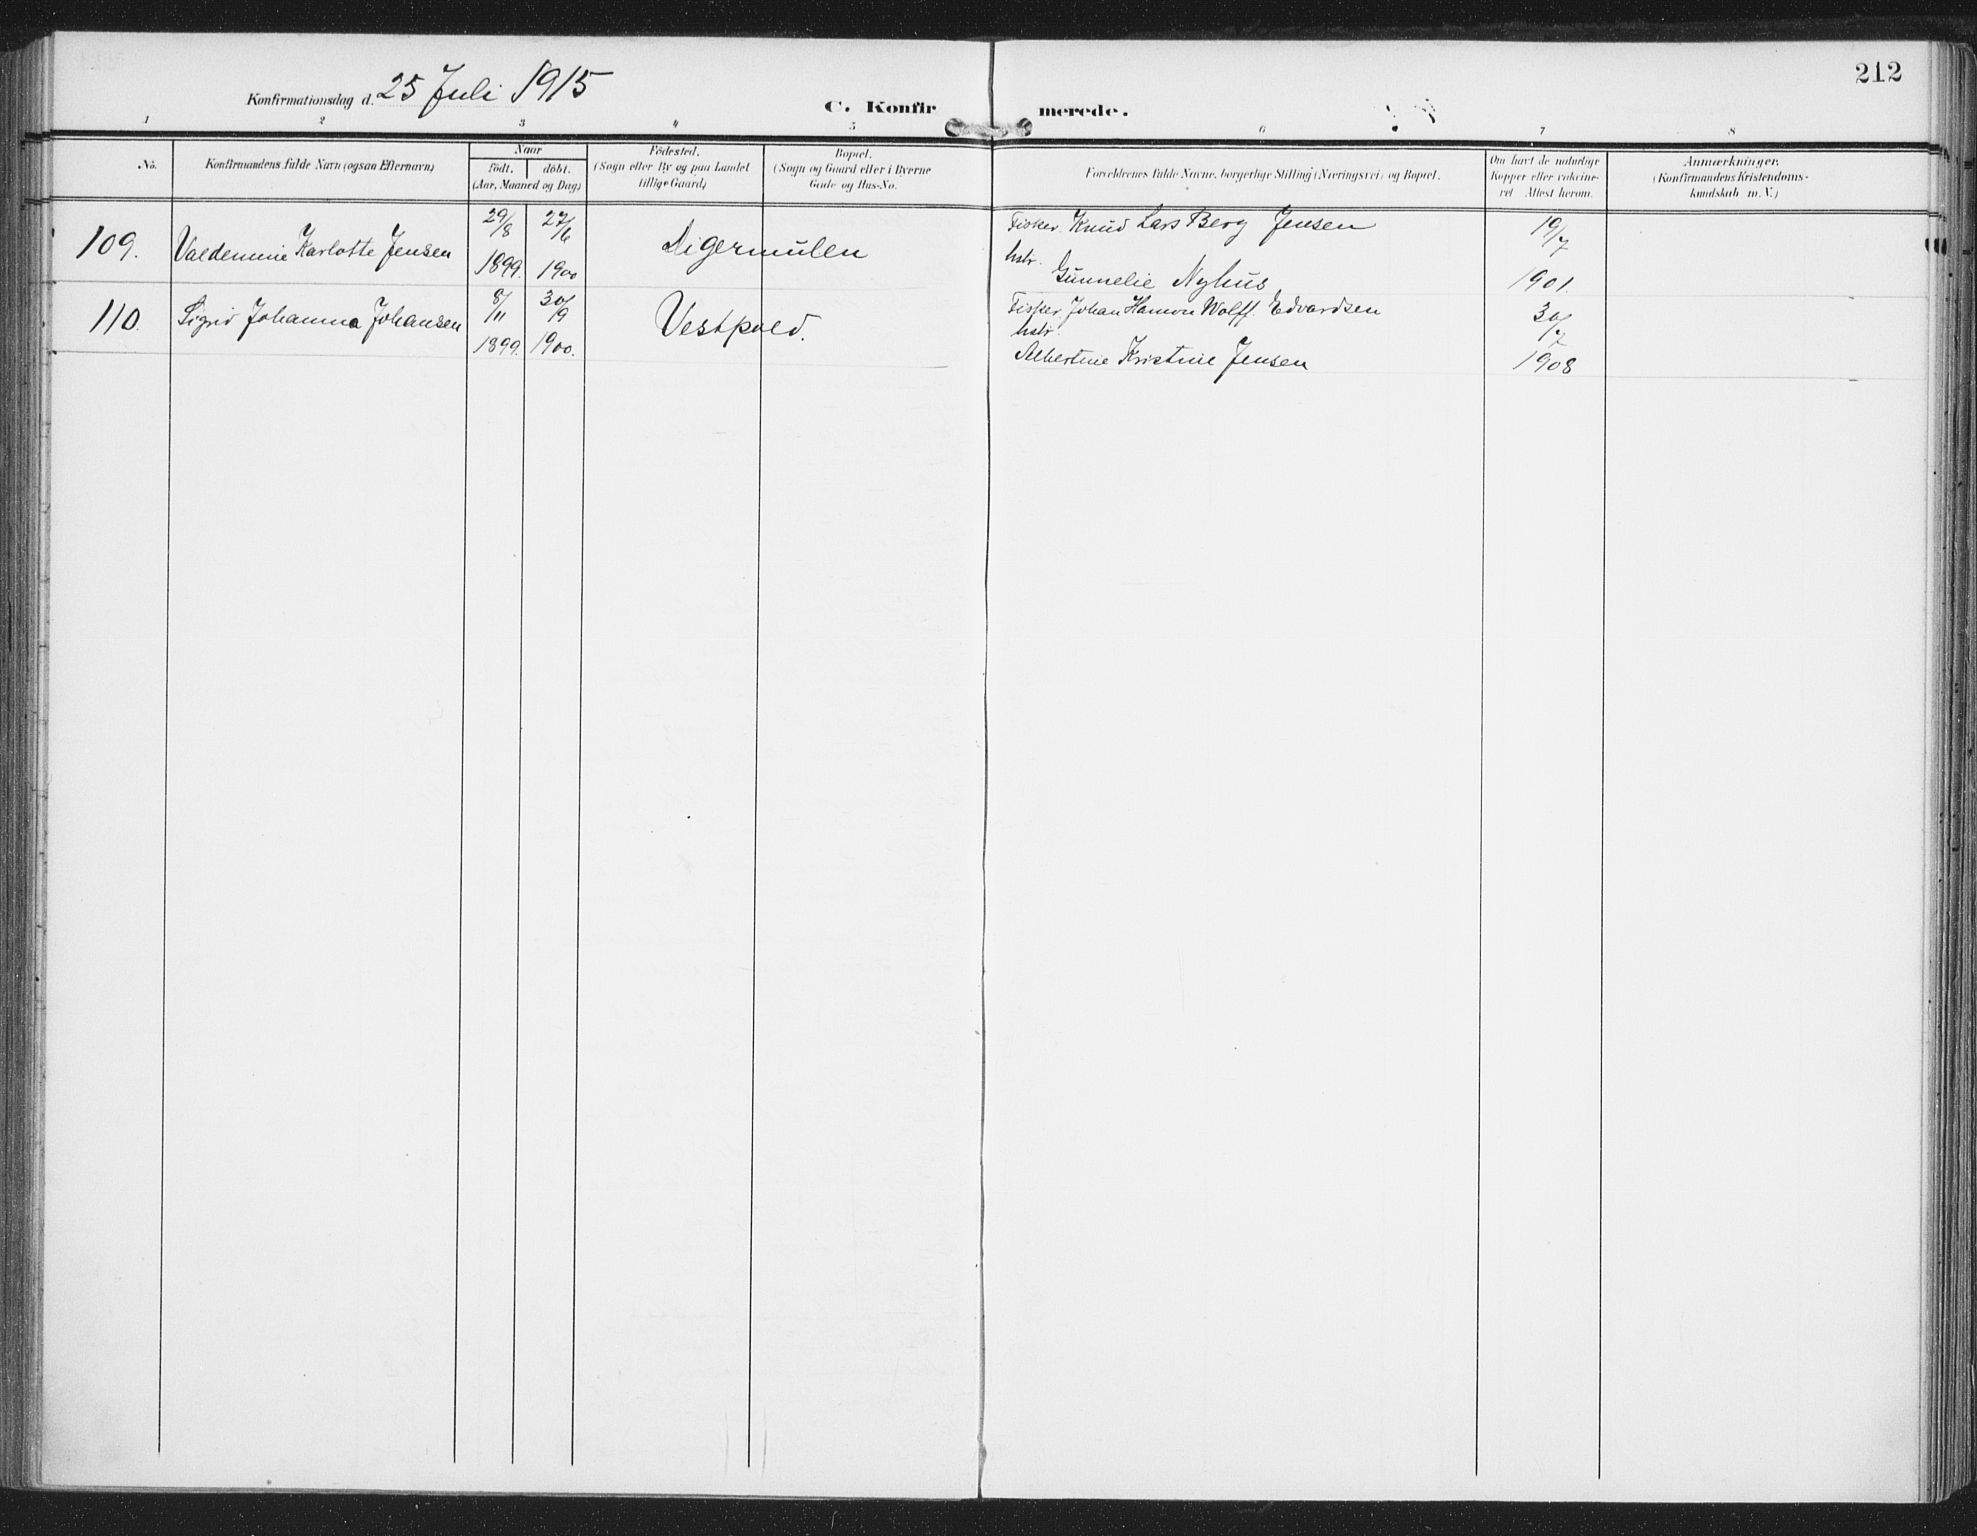 212
Konfirmationsdag d. 25 Juli 1915
C. Konfirmerede.
1 2 3 4 5 6 7 8
No.
Konfirmandens fulde Navn (ogsaa Efternavn)
Naar
födt. döbt.
(Aar, Maaned og Dag)
Födested.
(Sogn eller By og paa Landet
tillige Gaard)
Bopæl.
(Sogn og Gaard eller i Byerne
Gade og Hus-No.
Forældrenes fulde Navne, borgerlige Stilling (Næringsvei) og Bopæl.
Om havt de naturlige
Kopper eller vakcine-
ret Attest herom.
Anmærkninger.
(Konfirmandens Kristendoms-
kundskab m. V.)
109. Valdemine Karlotte Jensen 29/8 1899. 27/6 1900 Digermulen Fisker Knud Lars Berg Jensen 19/7 1901.
hstr. Gunnelie Nyhus
110. Sigrid Johanna Johansen 8/11 1899. 30/9 1900. Vestpold. Fisker Johan Hamon Wolff Edvardsen 30/7 1908
hstr.
Albertine Kristine Jensen